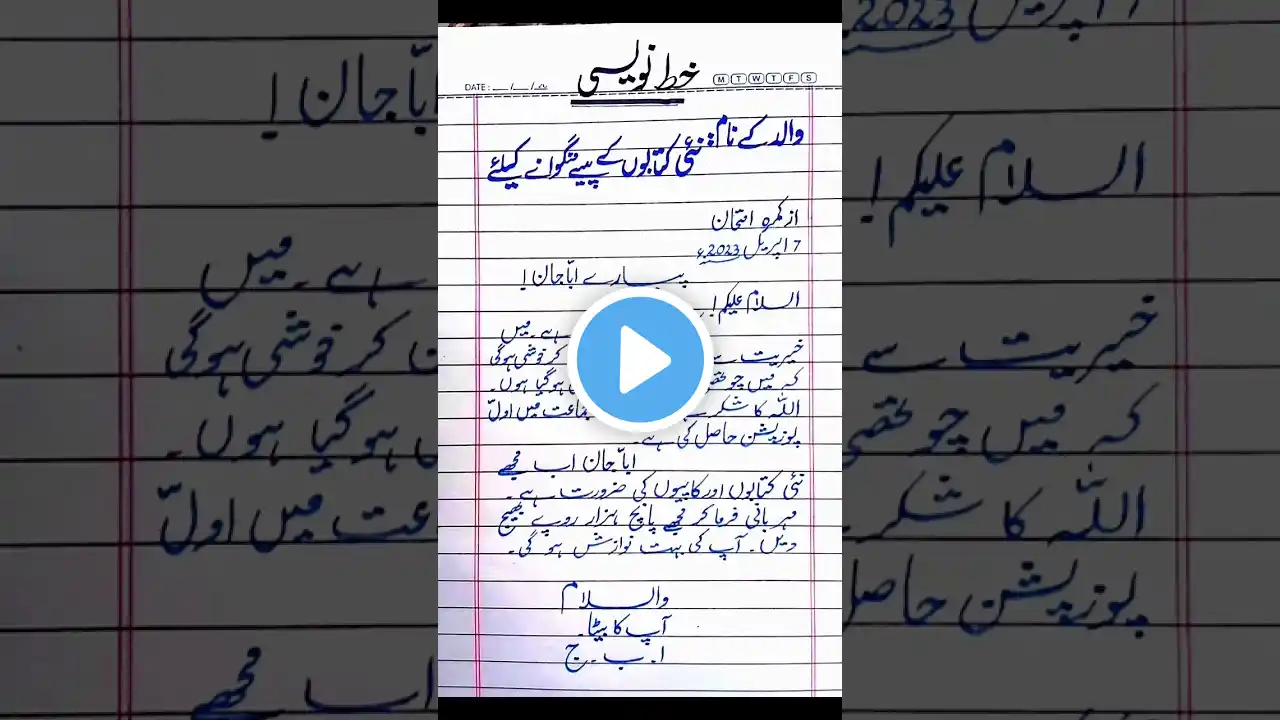 خط نویسی
M T W T F S
DATE: __/__/__
والد کے نام: نئی کتابوں کے پیسے منگوانے کیلئے
از کمرہ امتحان
7 اپریل 2023ء
پیارے ابّا جان!
السلام علیکم!
ہے۔ میں
خیریت سے کر خوشی ہوگی
کہ میں چوتھی ہوگیا ہوں۔
اللّٰہ کا شکر جماعت میں اولّ
پوزیشن حاصل کی ہے۔
ابّا جان اب مجھے
نئی کتابوں اور کاپیوں کی ضرورت ہے۔
مہربانی فرما کر مجھے پانچ ہزار روپے بھیج
دیں۔ آپ کی بہت نوازش ہو گی۔
والسلام
آپ کا بیٹا۔
ا۔ب۔ج